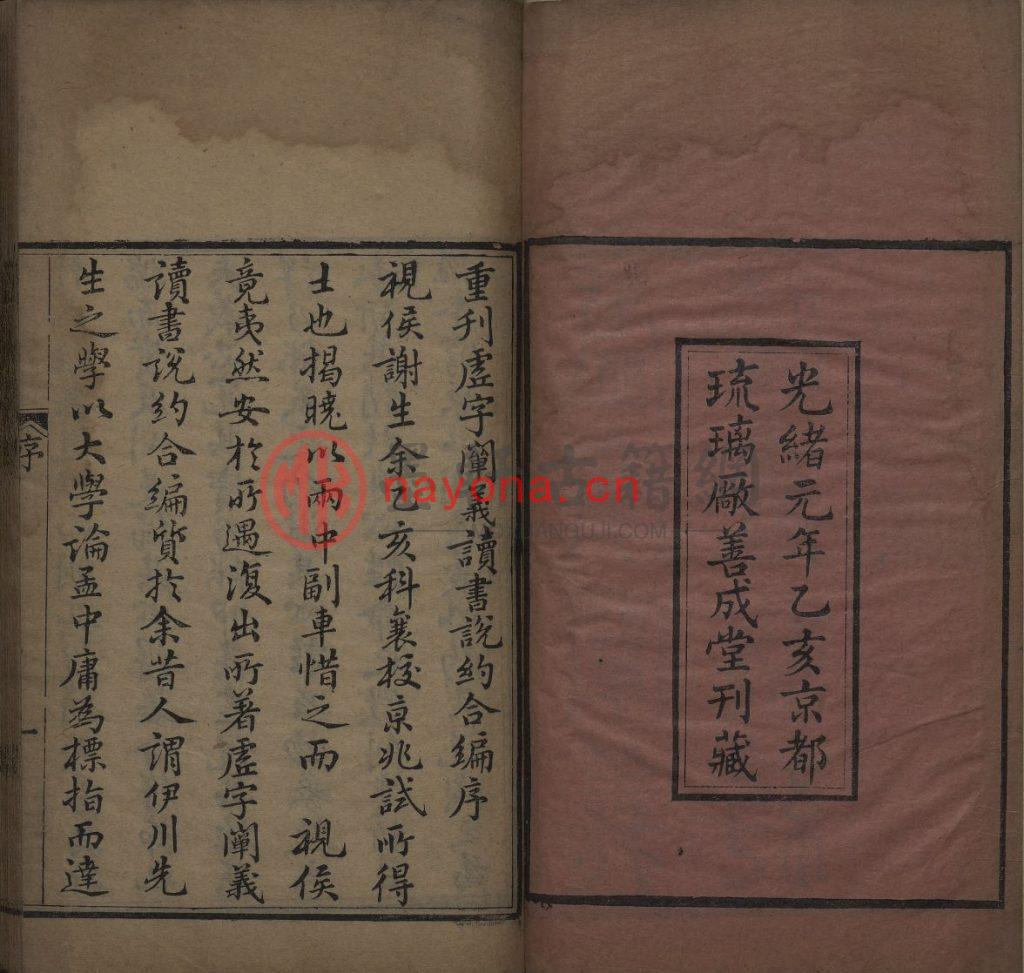 光緒元年乙亥京都
琉璃厰善成堂刊藏
重刊虛字闡義讀書說約合編序
視侯謝生余乙亥科襄校京兆試所得
士也揭曉以兩中副車惜之而 視侯
竟夷然安於所遇復出所著虛字闡義
讀書說約合編質於余昔人謂伊川先
生之學以大學論孟中庸為標指而達
序
一
nayona.cn